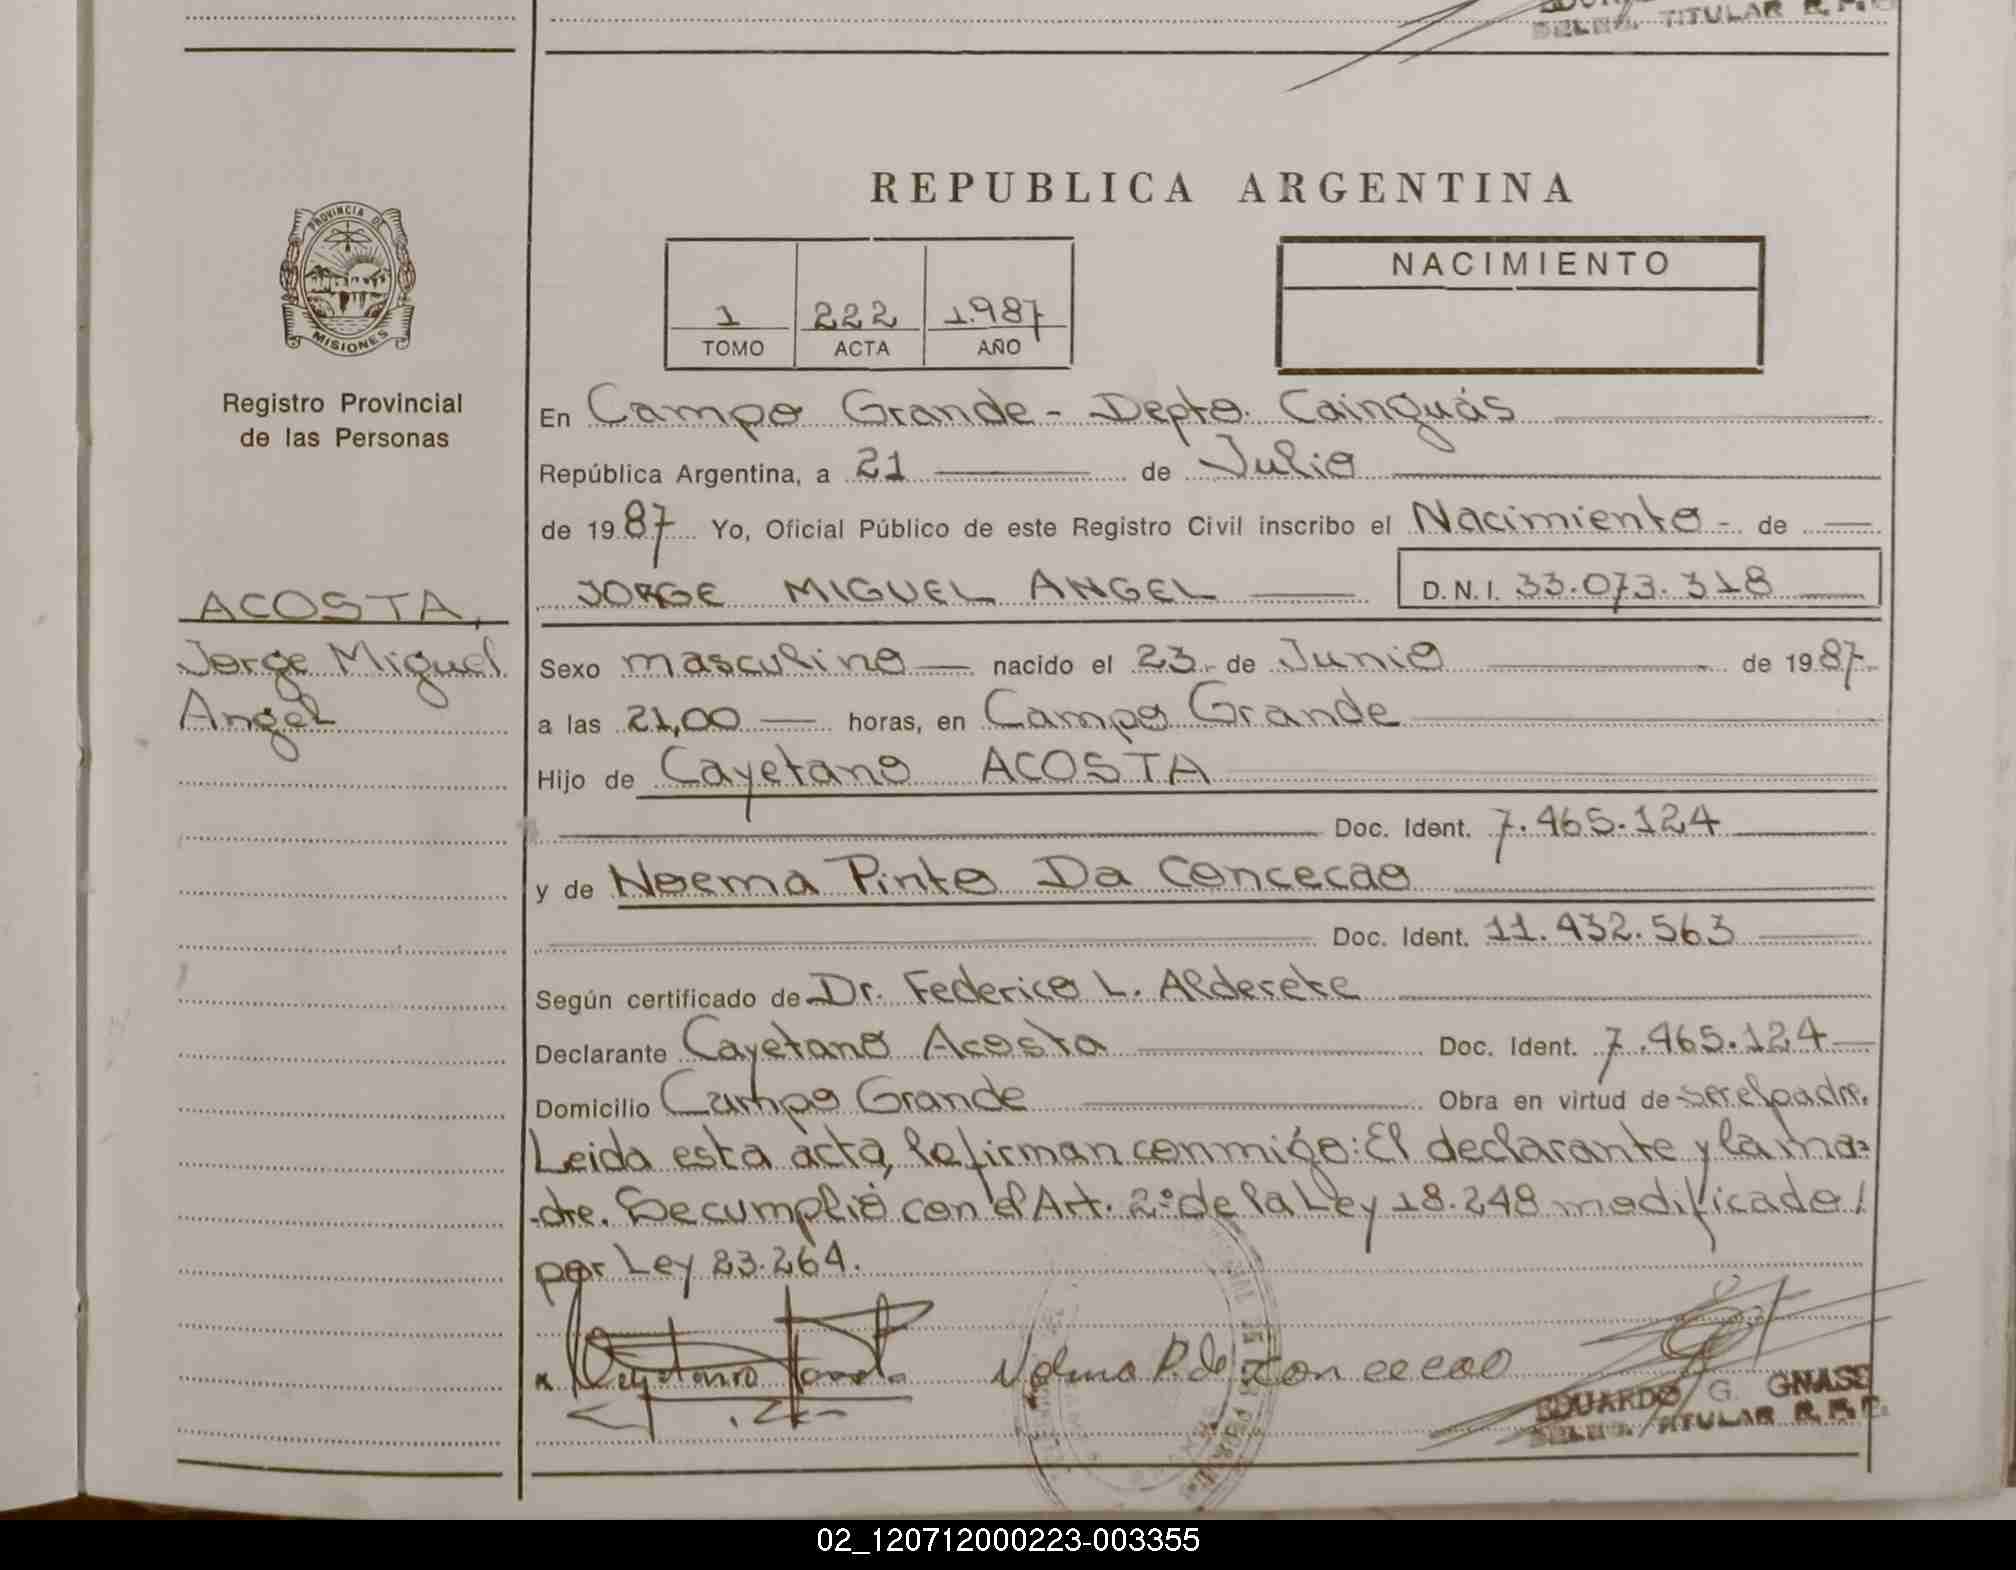 DELEG. TITULAR R.P.
REPUBLICA ARGENTINA
PROVINCIA DE
MISIONES
NACIMIENTO
1 222 1.987
TOMO ACTA AÑO
Registro Provincial
de las Personas
En Campo Grande - Depto. Cainguás
República Argentina, a 21 de Julio
de 1987 Yo, Oficial Público de este Registro Civil inscribo el Nacimiento - de
JORGE MIGUEL ANGEL D.N.I. 33.073.318
ACOSTA,
Jorge Miguel
Angel
Sexo masculino nacido el 23 de Junio de 1987
a las 21,00 horas, en Campo Grande
Hijo de Cayetano ACOSTA
Doc. Ident. 7.465.124
y de Noema Pinto Da Concecao
Doc. Ident. 11.432.563
Según certificado de Dr. Federico L. Alderete
Declarante Cayetano Acosta Doc. Ident. 7.465.124
Domicilio Campo Grande Obra en virtud de ser el padre.
Leida esta acta, la firman conmigo: El declarante y la ma=
dre. Se cumplió con el Art. 2º de la Ley 18.248 modificado/
por Ley 23.264.
P. de Concecao
EDUARDO G. GNASS
DELEG. TITULAR R.P.
02_120712000223-003355